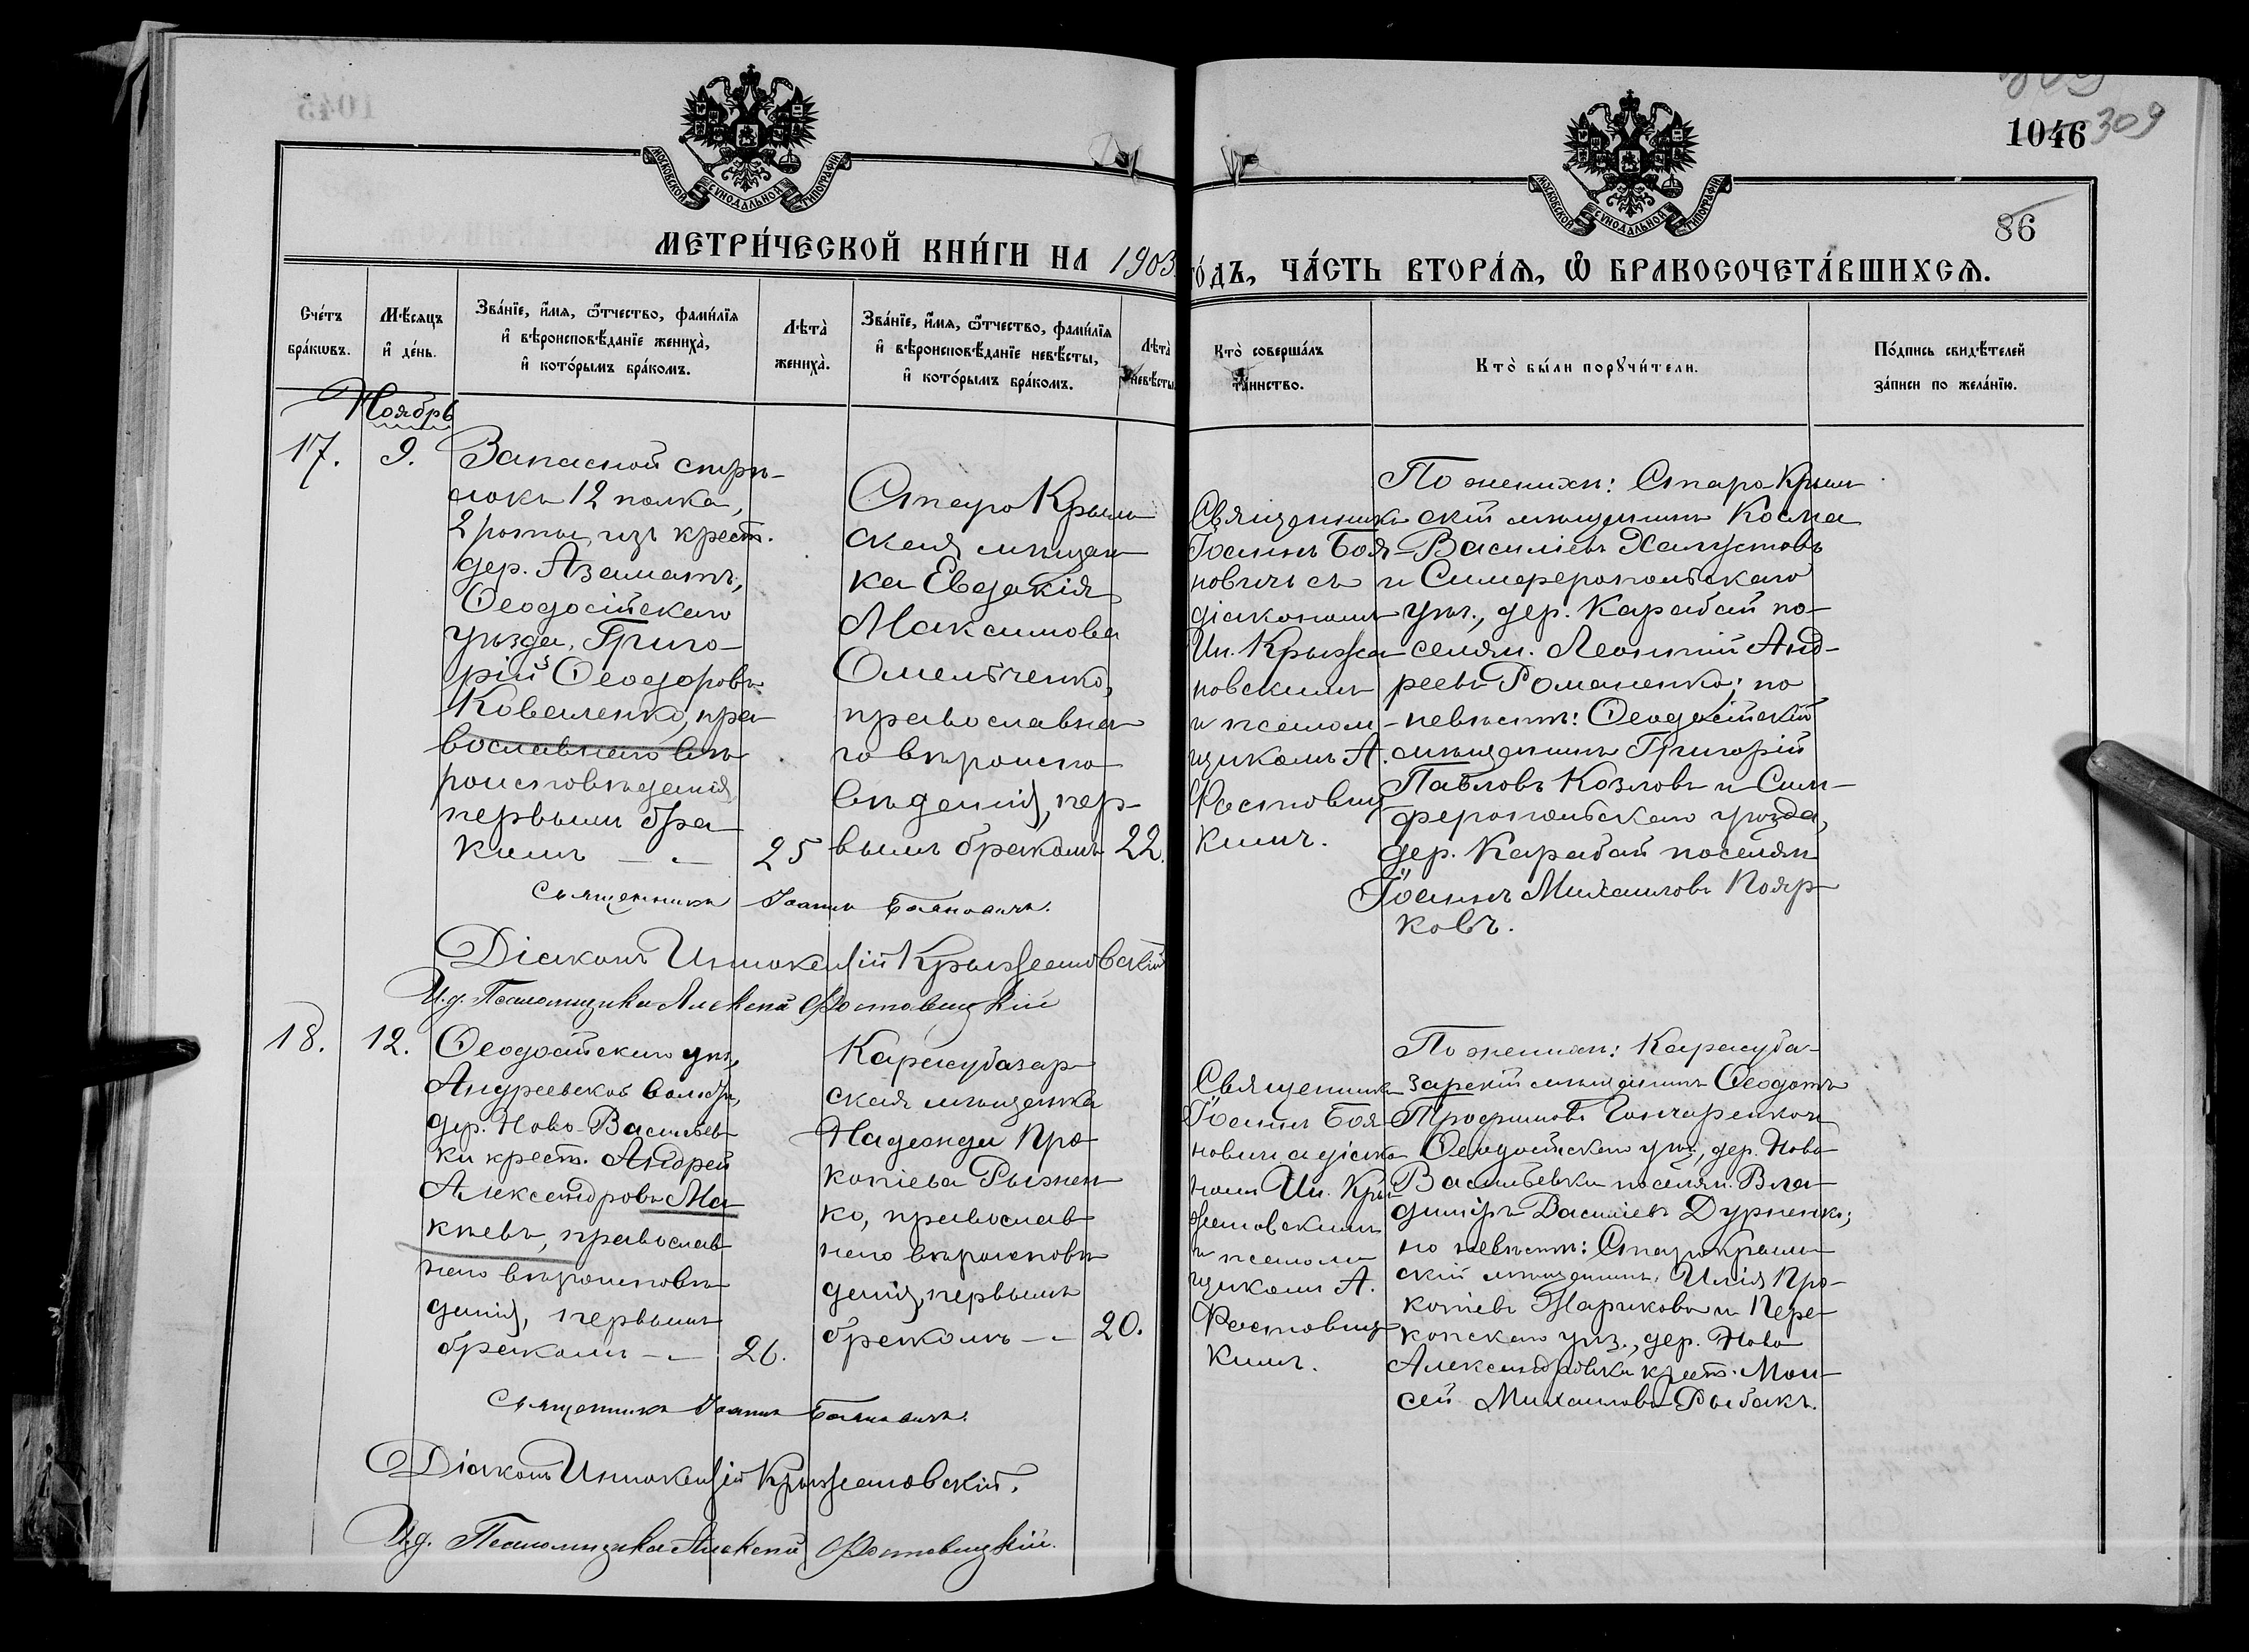 1046
309
86
МОСКОВСКОЙ СѴНОДАЛЬНОЙ ТИПОГРАФІИ
МОСКОВСКОЙ СѴНОДАЛЬНОЙ ТИПОГРАФІИ
МЕТРИ́ЧЕСКОЙ КНИ́ГИ НА 1903
ГО́ДЪ, ЧА́СТЬ ВТОРА́Ѧ, Ѽ БРАКОСОЧЕТА́ВШИХСѦ.
Сче́тъ
бра́кѡвъ.
Мѣ́сѧцъ
и҆ де́нь.
Зва́нїе, и҆́мѧ, ѻ҆́тчество, фами́лїѧ
и҆ вѣроисповѣ́данїе жениха̀,
и҆ кото́рымъ бра́комъ.
Лѣта̀
жениха̀.
Зва́нїе, и҆́мѧ, ѻ҆́тчество, фами́лїѧ
и҆ вѣроисповѣ́данїе невѣ́сты,
и҆ кото́рымъ бра́комъ.
Лѣта̀
невѣ́сты
Кто̀ соверша́лъ
та́инство.
Кто̀ бы́ли порꙋчи́тели.
По́дпись свидѣ́телей
за́писи по жела́нїю.
Ноябрь
17.
9.
Запасной стрѣ-
локъ 12 полка,
2 роты, изъ крест.
дер. Азаматъ,
Ѳеодосійскаго
уѣзда, Григо-
рій Ѳеодоровъ
Коваленко, пра-
вославнаго вѣ-
роисповѣданія,
первымъ бра-
комъ
25
Старо Крым-
ская мѣщан-
ка Евдокія
Максимова
Омельченко,
православна-
го вѣроиспо-
вѣданія, пер-
вымъ бракомъ
22.
Священникъ
Іоаннъ Боя-
новичъ съ
діакономъ
Ин. Крыжа-
новскимъ
и псалом-
щикомъ А.
Фастовиц-
кимъ.
По женихѣ: Старо Крым-
скій мѣщанинъ Косма
Василіевъ Халустовъ
и Симферопольскаго
уѣз., дер. Карабай по-
селян. Леонтій Анд-
реевъ Романенко; по
невѣстѣ: Ѳеодосійскій
мѣщанинъ Григорій
Павловъ Козловъ и Сим-
феропольскаго уѣзда,
дер. Карабай поселян.
Іоаннъ Михаиловъ Пояр-
ковъ.
Священникъ Іоаннъ Бояновичъ.
Діаконъ Иннокентій Крыжановскій
И.д. Псаломщика Алексѣй Фастовицкій
18.
12.
Ѳеодосійскаго уѣз,
Андреевской волости,
дер. Ново-Васильев-
ки крест. Андрей
Александровъ Ма-
кѣевъ, православ-
наго вѣроисповѣ-
данія, первымъ
бракомъ
26.
Карасубазар-
ская мѣщанка
Надежда Про-
копіева Рыжен-
ко, православ-
наго вѣроисповѣ-
данія, первымъ
бракомъ
20.
Священникъ
Іоаннъ Боя-
новичъ съ діако-
номъ Ин. Кры-
жановскимъ
и псалом-
щикомъ А.
Фастовиц-
кимъ.
По женихѣ: Карасуба-
зарскій мѣщанинъ Ѳеодотъ
Трофимовъ Гончаренко и
Ѳеодосійскаго уѣз., дер. Ново-
Васильевки поселян. Вла-
диміръ Василіевъ Дурненко;
по невѣстѣ: Старокрым-
скій мѣщанинъ Илія Про-
копіевъ Париковъ и Пере-
копскаго уѣз., дер. Ново
Александровки крест. Мои-
сей Михаиловъ Рыбакъ.
Священникъ Іоаннъ Бояновичъ.
Діаконъ Иннокентій Крыжановскій.
И.д. Псаломщика Алексѣй Фастовицкій.